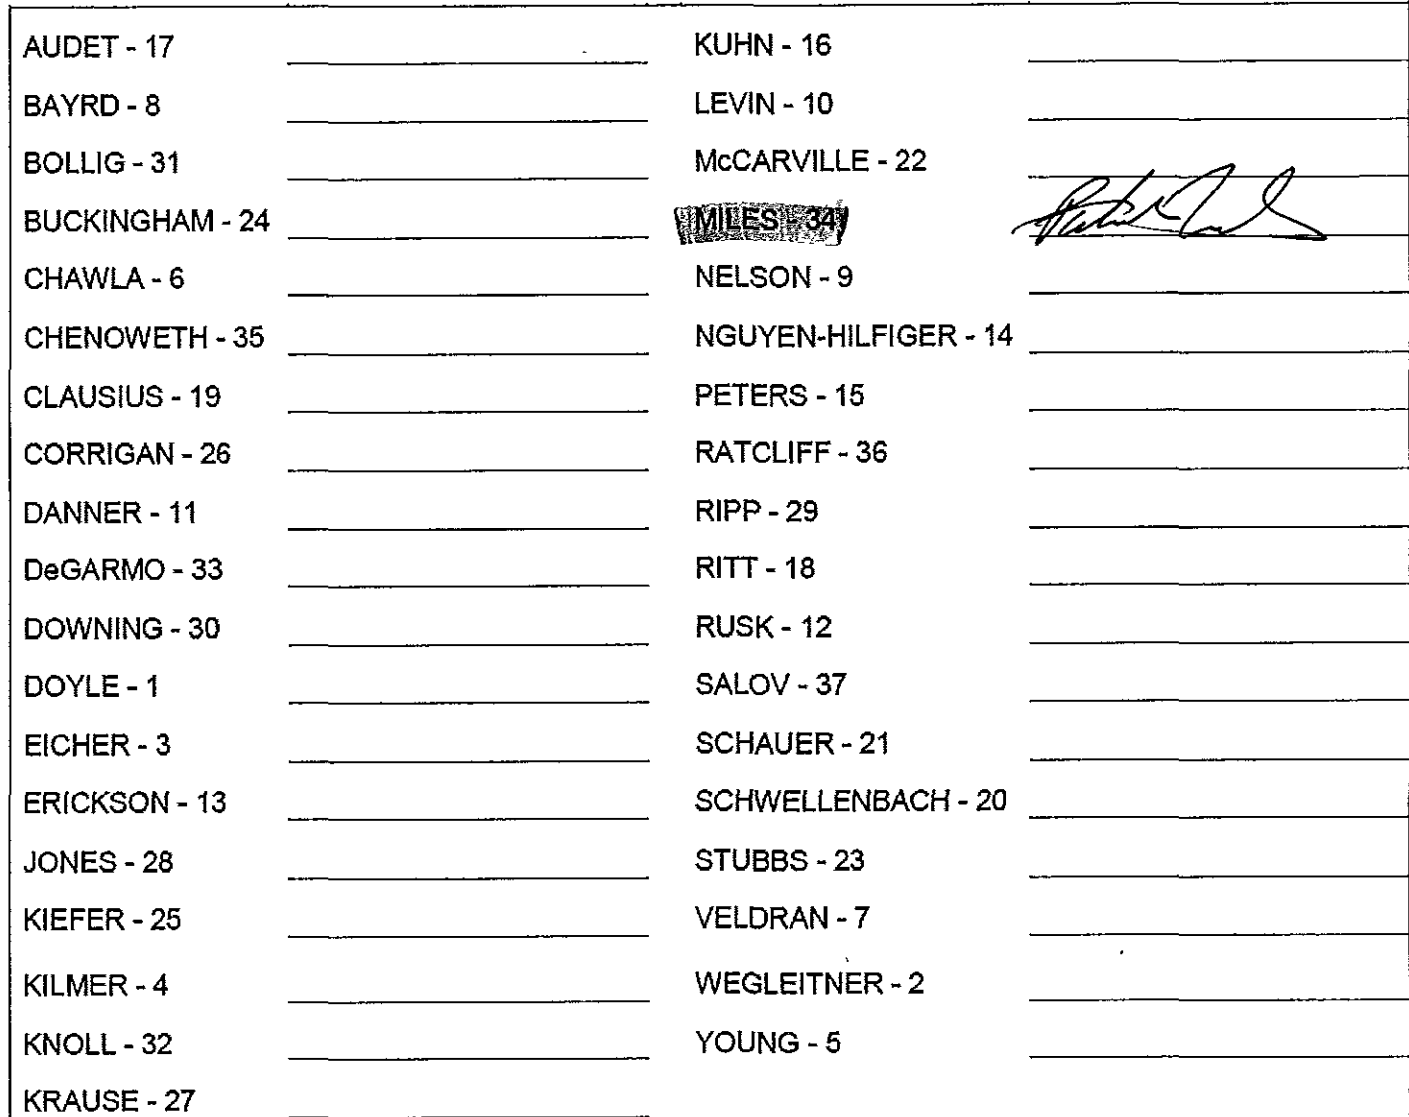 AUDET - 17
BAYRD - 8
BOLLIG - 31
BUCKINGHAM - 24
CHAWLA - 6
CHENOWETH - 35
CLAUSIUS - 19
CORRIGAN - 26
DANNER - 11
DeGARMO - 33
DOWNING - 30
DOYLE - 1
EICHER - 3
ERICKSON - 13
JONES - 28
KIEFER - 25
KILMER - 4
KNOLL - 32
KRAUSE - 27
KUHN - 16
LEVIN - 10
McCARVILLE - 22
MILES - 34
NELSON - 9
NGUYEN-HILFIGER - 14
PETERS - 15
RATCLIFF - 36
RIPP - 29
RITT - 18
RUSK - 12
SALOV - 37
SCHAUER - 21
SCHWELLENBACH - 20
STUBBS - 23
VELDRAN - 7
WEGLEITNER - 2
YOUNG - 5